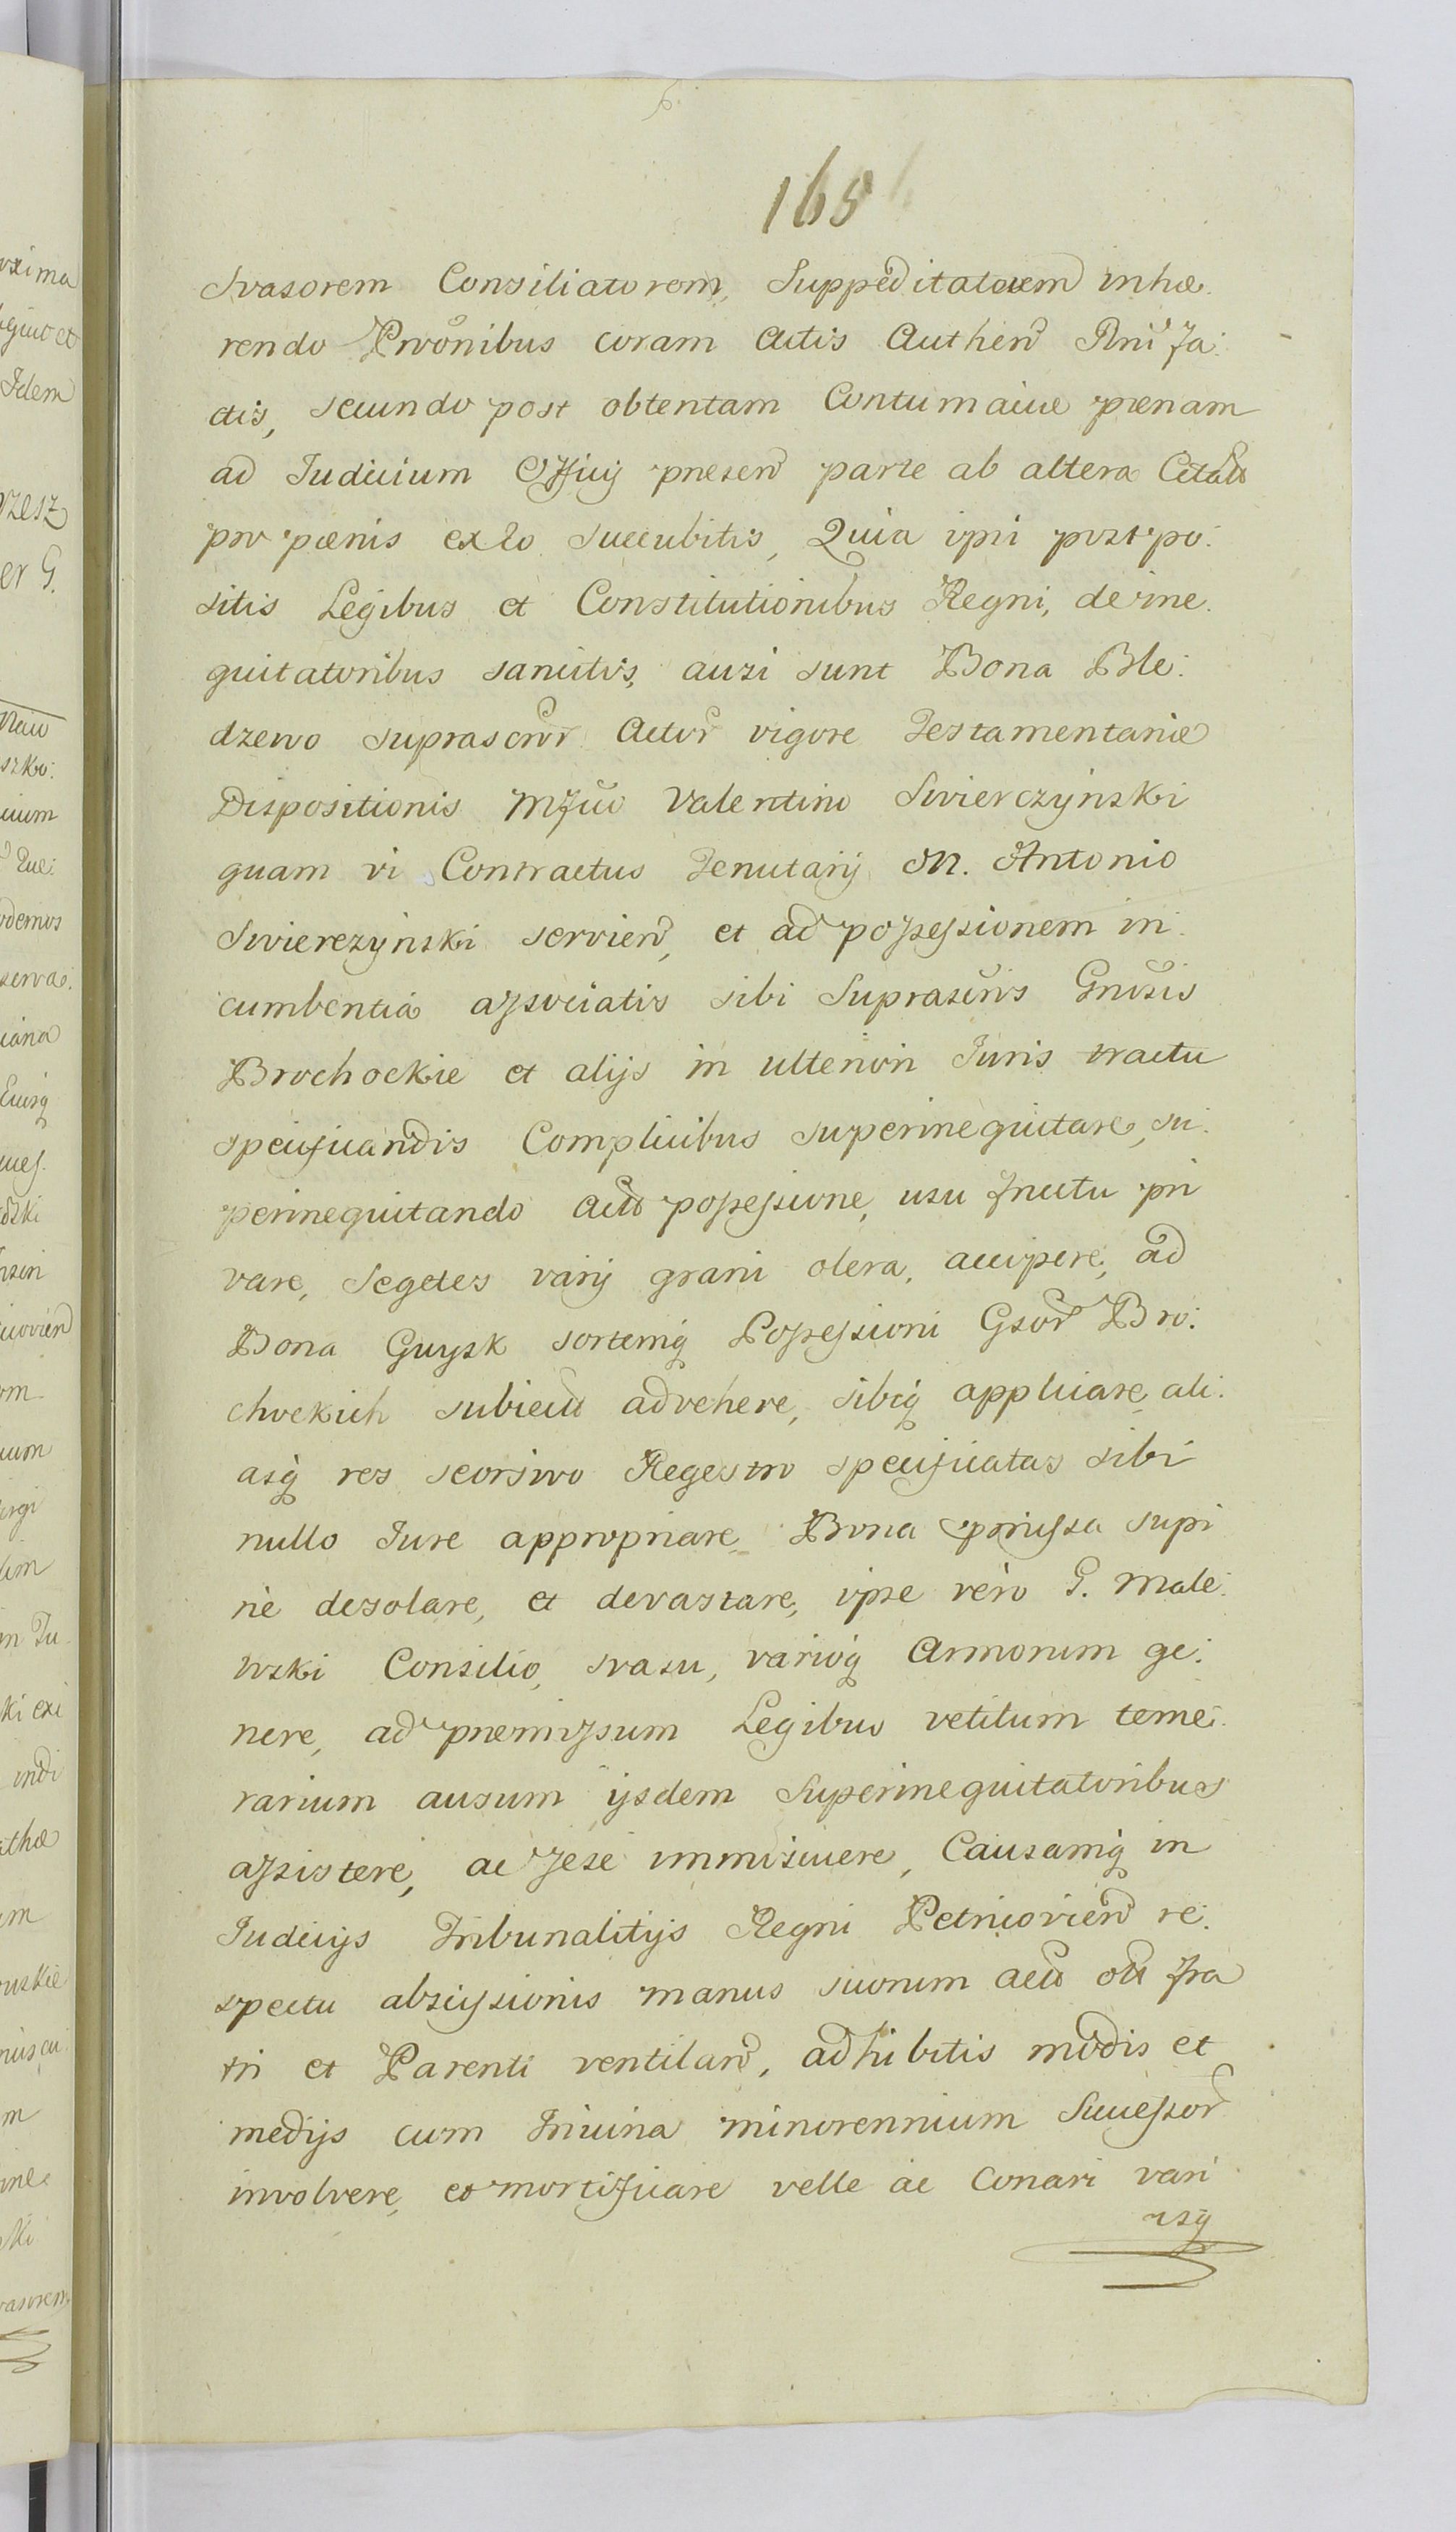 165
Svasorem Consiliatorem, Suppeditatorem inhæ.
rendo Prõonibus coram Actis Authen Rni fa:
ctis, secundo post obtentam Contumaciæ pænam
ad Iudicium Officij presen parte ab altera Citato
pro pænis ex 2o succubitis, Quia ipsi postpo:
sitis Legibus et Constitutionibus Regni, de ine.
quitatoribus sancitis, ausi sunt Bona Ble:
dzewo suprascrŏr Actor vigore Testamentariæ
Dispositionis Mfco Valentino Swierczynski
quam vi Contractus Tenutarij M. Antonio
Swierczynski servien, et ad possessionem in:
cumbentia associatis sibi Suprascris Gnosis
Brochockie et alijs in ulteriori Iuris tractu
specificandis Complicibus superinequitare, su:
perinequitando Actor possessione, usu fructu pri
vare, Segetes varij grani olera, accipere, ad
Bona Guysk sortemq Possessioni Gsor Bro:
chockich subiecta advehere, sibiq applicare ali:
asq res seorsivo Regestro specificatas sibi
nullo Iure appropriare Bona prmissa supi
nè desolare, et devastare, ipse vero G. Male:
wski Consilio, svasu, varioq Armorum ge:
nere, ad premissum Legibus vetitum teme:
rarium ausum ijsdem Superinequitatoribus
assistere, ac sese immiscuere, Causamq in
Iudicijs Tribunalitijs Regni Petricovien re:
spectu abscissionis manus suorum act olt fra
tri et Parenti ventilan, adhibitis modis et
medijs cum Iniuria minorennium Successor
involvere, et mortificare velle ac Conari vari
usq